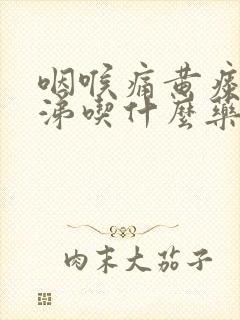 咽喉痛黄痰
涕喫什麼藥
肉末大茄子